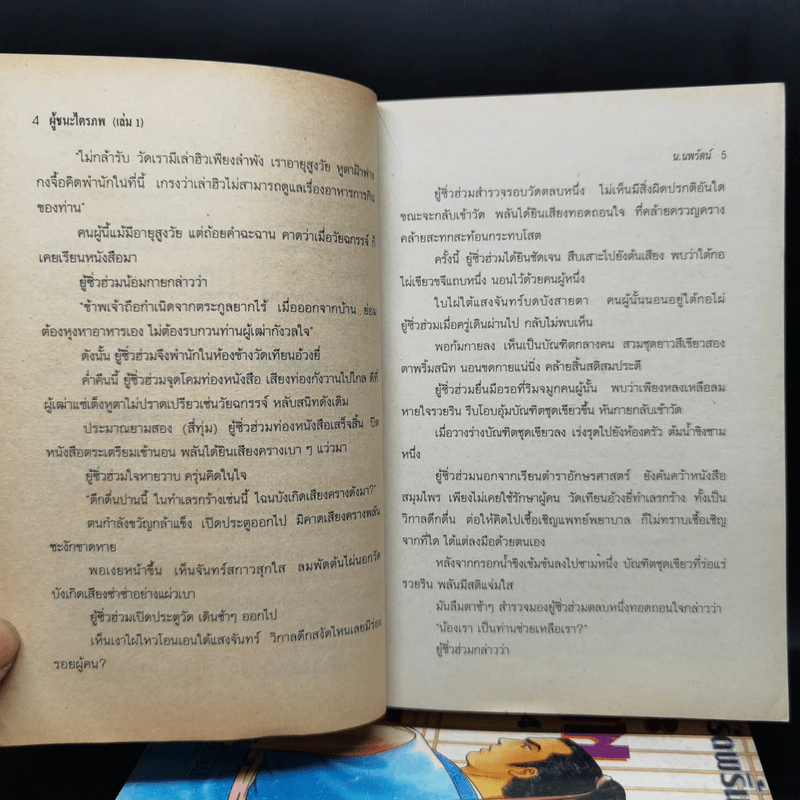 4 ผู้ชนะไตรภพ (เล่ม 1)
"ไม่กล้ารับ วัดเรามีเล่าฮิวเพียงลำพัง เราอายุสูงวัย หูตาฝ้าฟาง
กงจื้อคิดพำนักในที่นี้ เกรงว่าเล่าฮิวไม่สามารถดูแลเรื่องอาหารการกิน
ของท่าน"
คนผู้นี้แม้มีอายุสูงวัย แต่ถ้อยคำฉะฉาน คาดว่าเมื่อวัยฉกรรจ์ ก็
เคยเรียนหนังสือมา
ยู้ซิ่วฮ่วมน้อมกายกล่าวว่า
"ข้าพเจ้าถือกำเนิดจากตระกูลยากไร้ เมื่อออกจากบ้าน ย่อม
ต้องหุงหาอาหารเอง ไม่ต้องรบกวนท่านผู้เฒ่ากังวลใจ"
ดังนั้น ยู้ซิ่วฮ่วมจึงพำนักในห้องข้างวัดเทียนอ้วงยี่
ค่ำคืนนี้ ยู้ซิ่วฮ่วมจุดโคมท่องหนังสือ เสียงท่องกังวานไปไกล ดีที่
ผู้เฒ่าแซ่เต็งหูตาไม่ปราดเปรียวเช่นวัยฉกรรจ์ หลับสนิทดังเดิม
ประมาณยามสอง (สี่ทุ่ม) ยู้ซิ่วฮ่วมท่องหนังสือเสร็จสิ้น ปิด
หนังสือตระเตรียมเข้านอน พลันได้ยินเสียงครางเบา ๆ แว่วมา
ยู้ซิ่วฮ่วมใจหายวาบ ครุ่นคิดในใจ
"ดึกดื่นปานนี้ ในทำเลรกร้างเช่นนี้ ไฉนบังเกิดเสียงครางดังมา?"
ตนกำลังขวัญกล้าแข็ง เปิดประตูออกไป มิคาดเสียงครางพลัน
ชะงักขาดหาย
พอเงยหน้าขึ้น เห็นจันทร์สกาวสุกใส ลมพัดต้นไผ่นอกวัด
บังเกิดเสียงซ่าซ่าอย่างแผ่วเบา
ยู้ซิ่วฮ่วมเปิดประตูวัด เดินช้าๆ ออกไป
เห็นเงาไผ่ไหวโอนเอนใต้แสงจันทร์ วิกาลดึกสงัดไหนเลยมีร่อง
รอยผู้คน?
น.นพรัตน์ 5
ยู้ซิ่วฮ่วมสำรวจรอบวัดตลบหนึ่ง ไม่เห็นมีสิ่งผิดปรกติอันใด
ขณะจะกลับเข้าวัด พลันได้ยินเสียงทอดถอนใจ ที่คล้ายครวญคราง
คล้ายสะทกสะท้อนกระทบโสต
ครั้งนี้ ยู้ซิ่วฮ่วมได้ยินชัดเจน สืบเสาะไปยังต้นเสียง พบว่าใต้กอ
ไผ่เขียวขจีแถบหนึ่ง นอนไว้ด้วยคนผู้หนึ่ง
ใบไผ่ใต้แสงจันทร์บดบังสายตา คนผู้นั้นนอนอยู่ใต้กอไผ่
ยู้ซิ่วฮ่วมเมื่อครู่เดินผ่านไป กลับไม่พบเห็น
พอก้มกายลง เห็นเป็นบัณฑิตกลางคน สวมชุดยาวสีเขียวสอง
ตาพริ้มสนิท นอนขดกายแน่นิ่ง คล้ายสิ้นสติสมประดี
ยู้ซิ่วฮ่วมยื่นมือรอที่ริมจมูกคนผู้นั้น พบว่าเพียงหลงเหลือลม
หายใจรวยริน รีบโอบอุ้มบัณฑิตชุดเขียวขึ้น หันกายกลับเข้าวัด
เมื่อวางร่างบัณฑิตชุดเขียวลง เร่งรุดไปยังห้องครัว ต้มน้ำขิงชาม
หนึ่ง
ยู้ซิ่วฮ่วมนอกจากเรียนตำราอักษรศาสตร์ ยังค้นคว้าหนังสือ
สมุนไพร เพียงไม่เคยใช้รักษาผู้คน วัดเทียนอ้วงยี่ทำเลรกร้าง ทั้งเป็น
วิกาลดึกดื่น ต่อให้คิดไปเชื้อเชิญแพทย์พยาบาล ก็ไม่ทราบเชื้อเชิญ
จากที่ใด ได้แต่ลงมือด้วยตนเอง
หลังจากกรอกน้ำขิงเข้มข้นลงไปชามหนึ่ง บัณฑิตชุดเขียวที่ร่อแร่
รวยริน พลันมีสติแจ่มใส
มันลืมตาช้าๆ สำรวจมองยู้ซิ่วฮ่วมตลบหนึ่งทอดถอนใจกล่าวว่า
"น้องเรา เป็นท่านช่วยเหลือเรา?"
ยู้ซิ่วฮ่วมกล่าวว่า